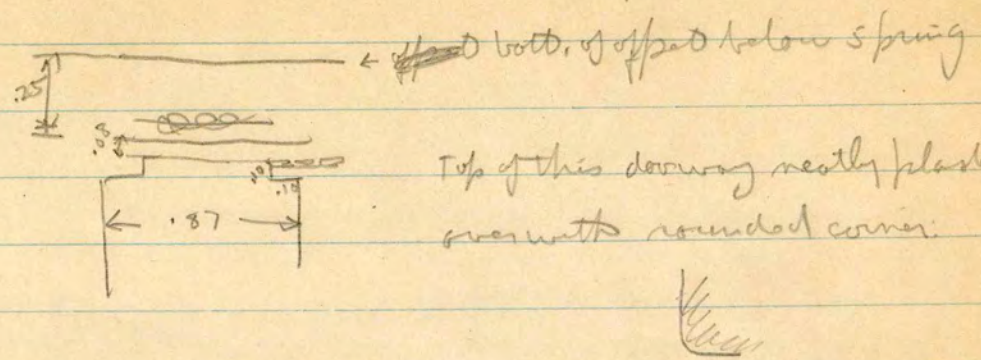 ← bott. of offset below spring
.25
.08
Top of this doorway neatly plast
.10
.10
.87
over with rounded corner.